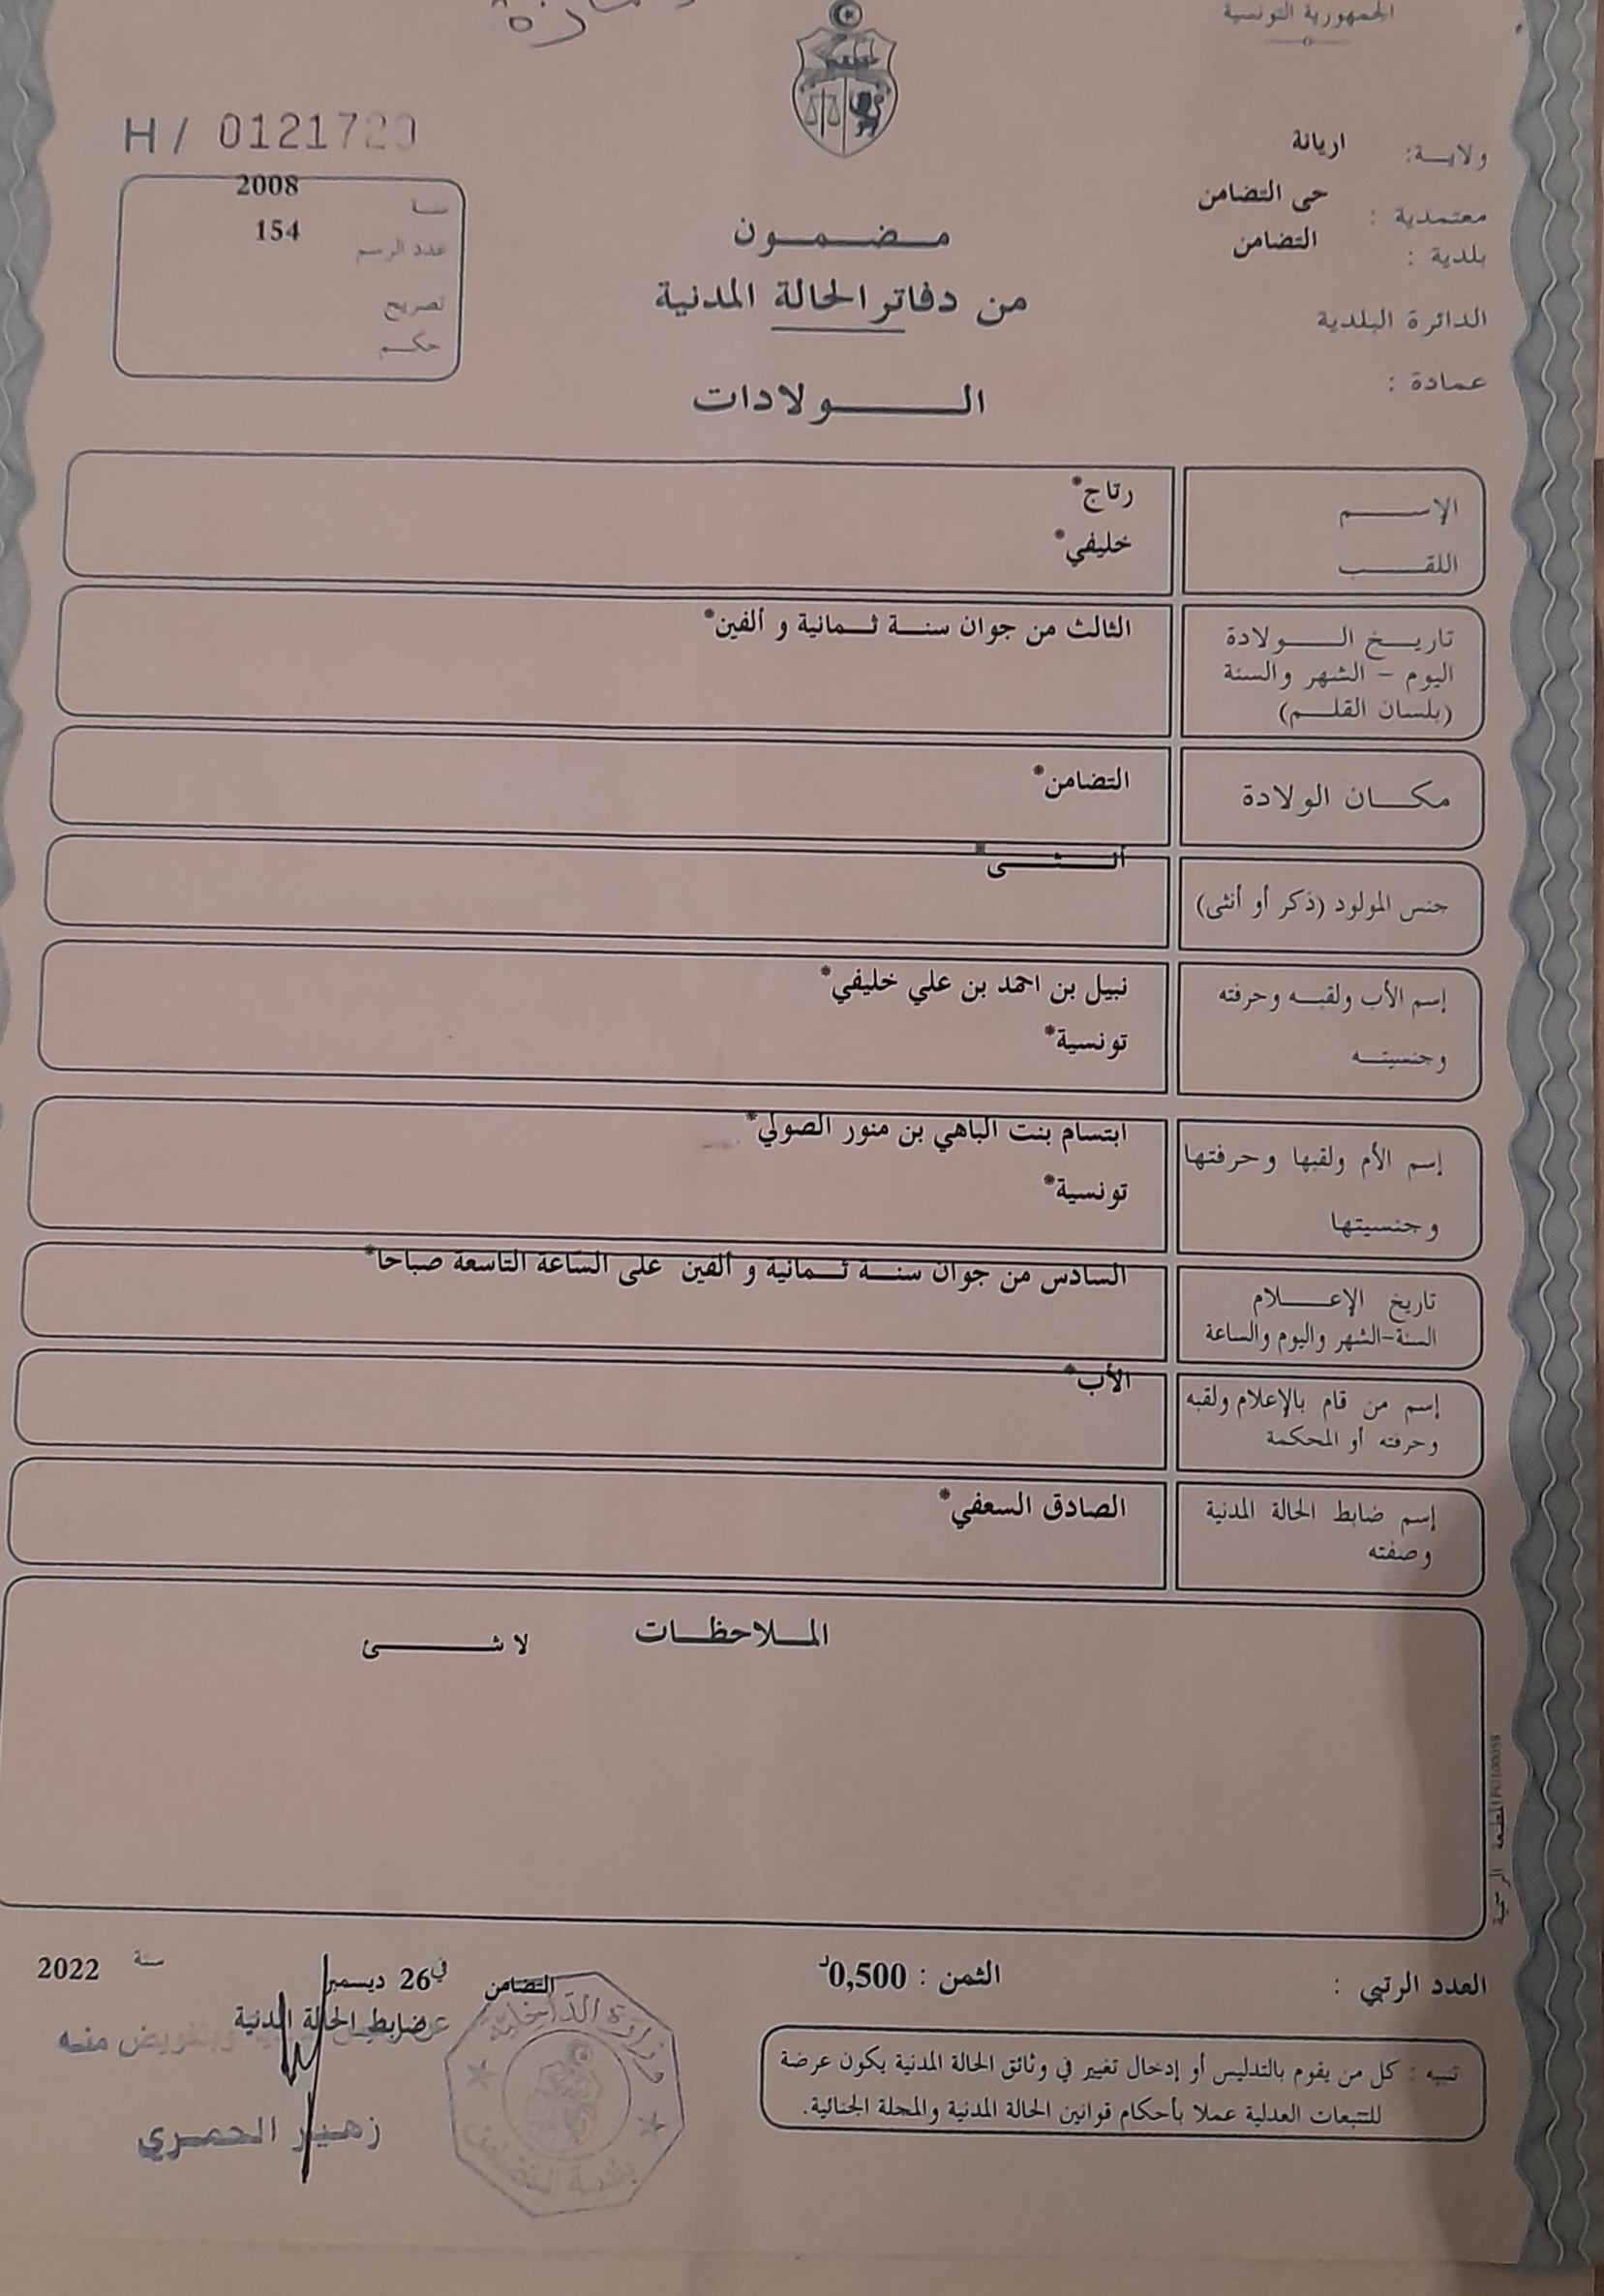 الجمهورية التونسية
ولاية: اريانة
معتمدية : حى التضامن
بلدية : التضامن
الدائرة البلدية
عمادة :
H / 0121720
سنة 2008
عدد الرسم 154
تصريح
حكم
مضمون
من دفاتر الحالة المدنية
الولادات
الإسم رتاج*
اللقب خليفي*
تاريخ الولادة
اليوم - الشهر والسنة
(بلسان القلم)
الثالث من جوان سنة ثمانية و ألفين*
مكان الولادة التضامن*
جنس المولود (ذكر أو أنثى) أنثى*
إسم الأب ولقبه وحرفته
وجنسيته
نبيل بن احمد بن علي خليفي*
تونسية*
إسم الأم ولقبها وحرفتها
وجنسيتها
ابتسام بنت الباهي بن منور الصولي*
تونسية*
تاريخ الإعلام
السنة-الشهر واليوم والساعة
السادس من جوان سنة ثمانية و ألفين على الساعة التاسعة صباحا*
إسم من قام بالإعلام ولقبه
وحرفته أو المحكمة
الأب*
إسم ضابط الحالة المدنية
وصفته
الصادق السعفي*
الملاحظات لا شئ
المطبعة الرسمية
العدد الرتبي :
الثمن : 0,500د
التضامن في 26 ديسمبر سنة 2022
ضابط الحالة المدنية
وبتفويض منه
زهير الحمري
وزارة الداخلية
بلدية التضامن
تنبيه : كل من يقوم بالتدليس أو إدخال تغيير في وثائق الحالة المدنية يكون عرضة
للتتبعات العدلية عملا بأحكام قوانين الحالة المدنية والمجلة الجنائية.